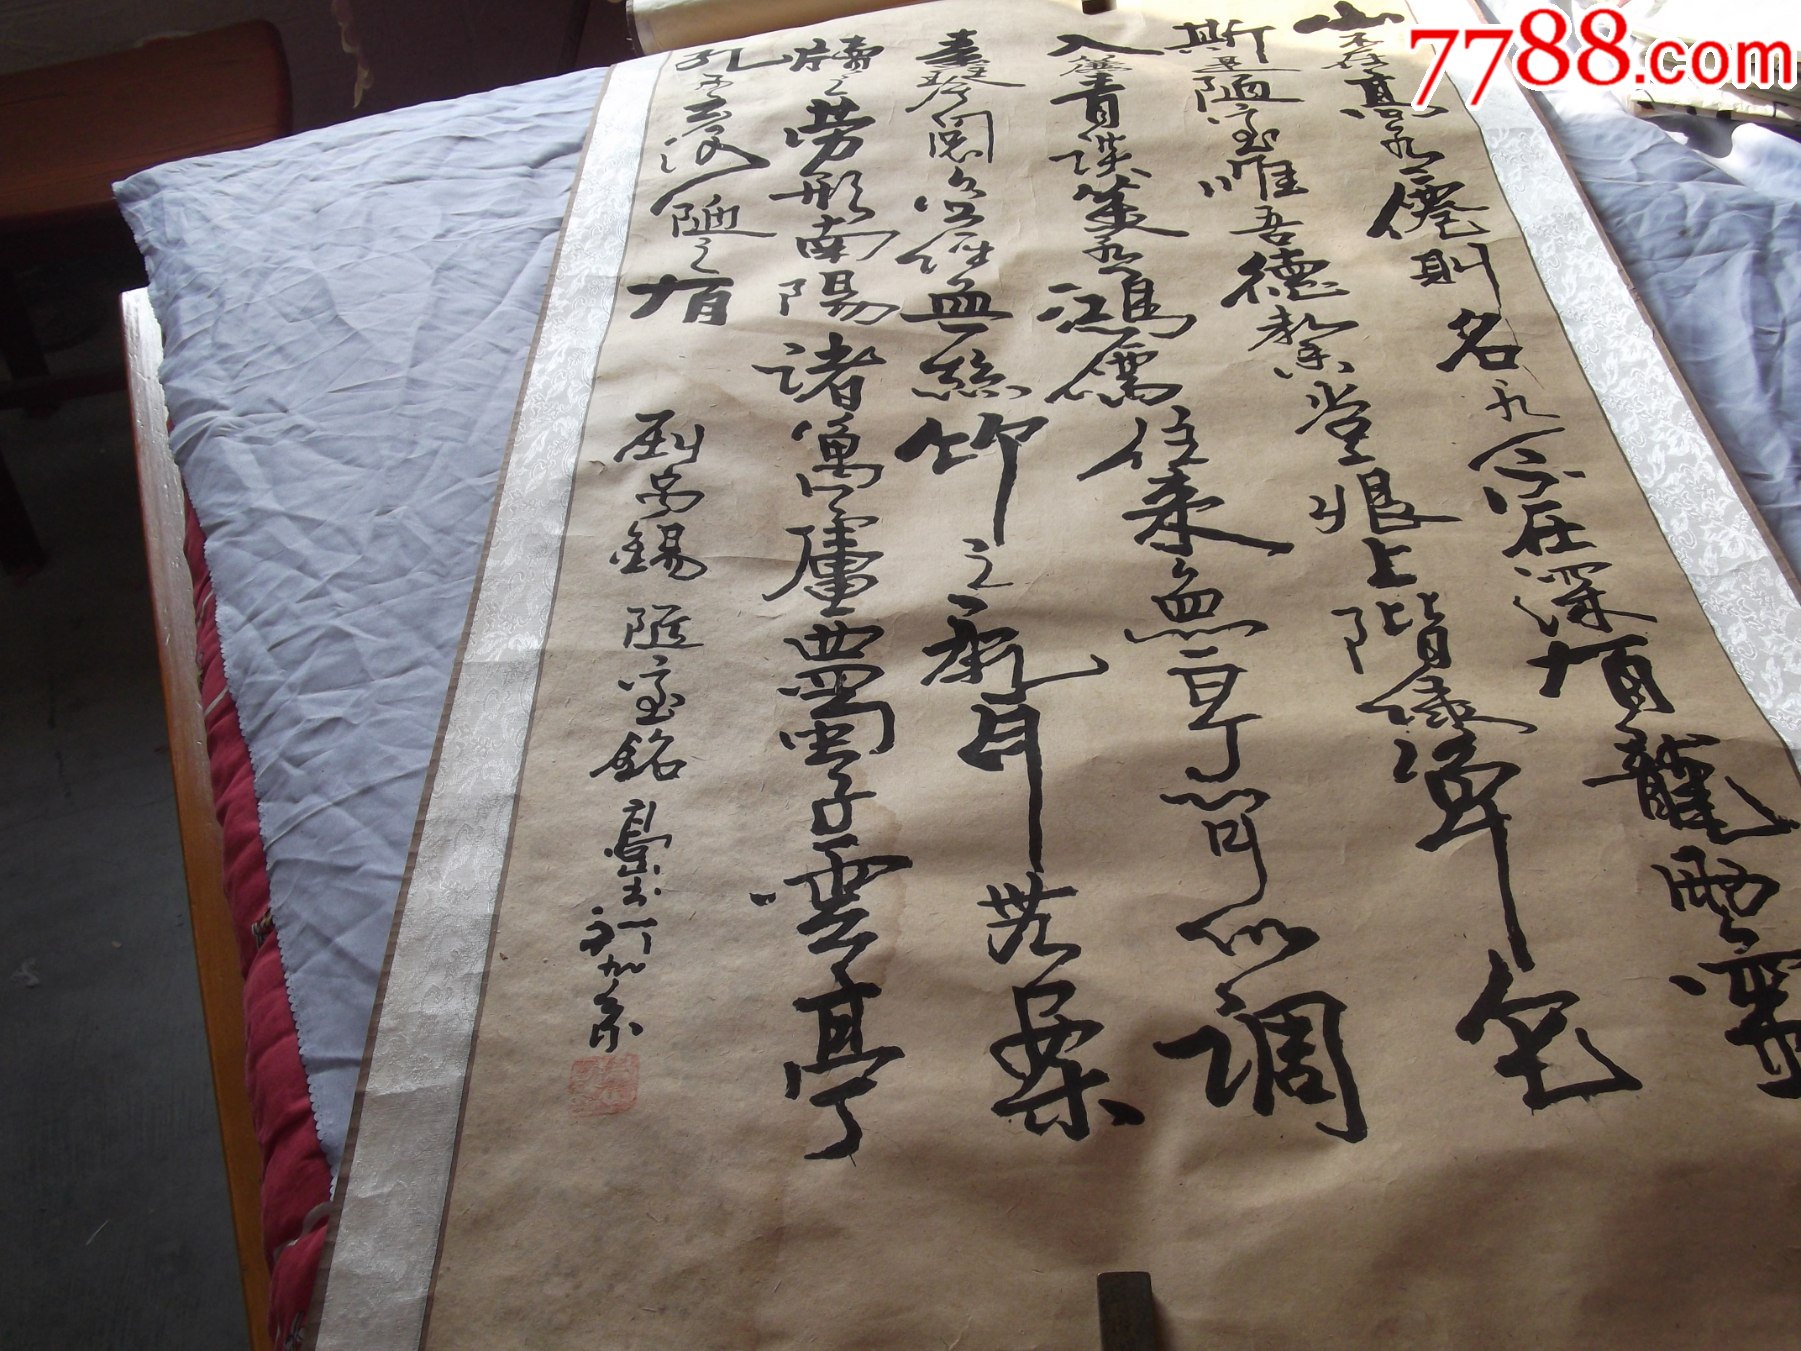 7788.com
山不在高有僊則名水不在深有龍靈
斯是陋室唯吾德馨苔痕上階綠草色
入簾青談笑有鴻儒往來無白丁可以調
素琴閱金經無絲竹之亂耳無案
牘之勞形南陽諸葛廬西蜀子雲亭
孔子云何陋之有
劉禹錫 陋室銘